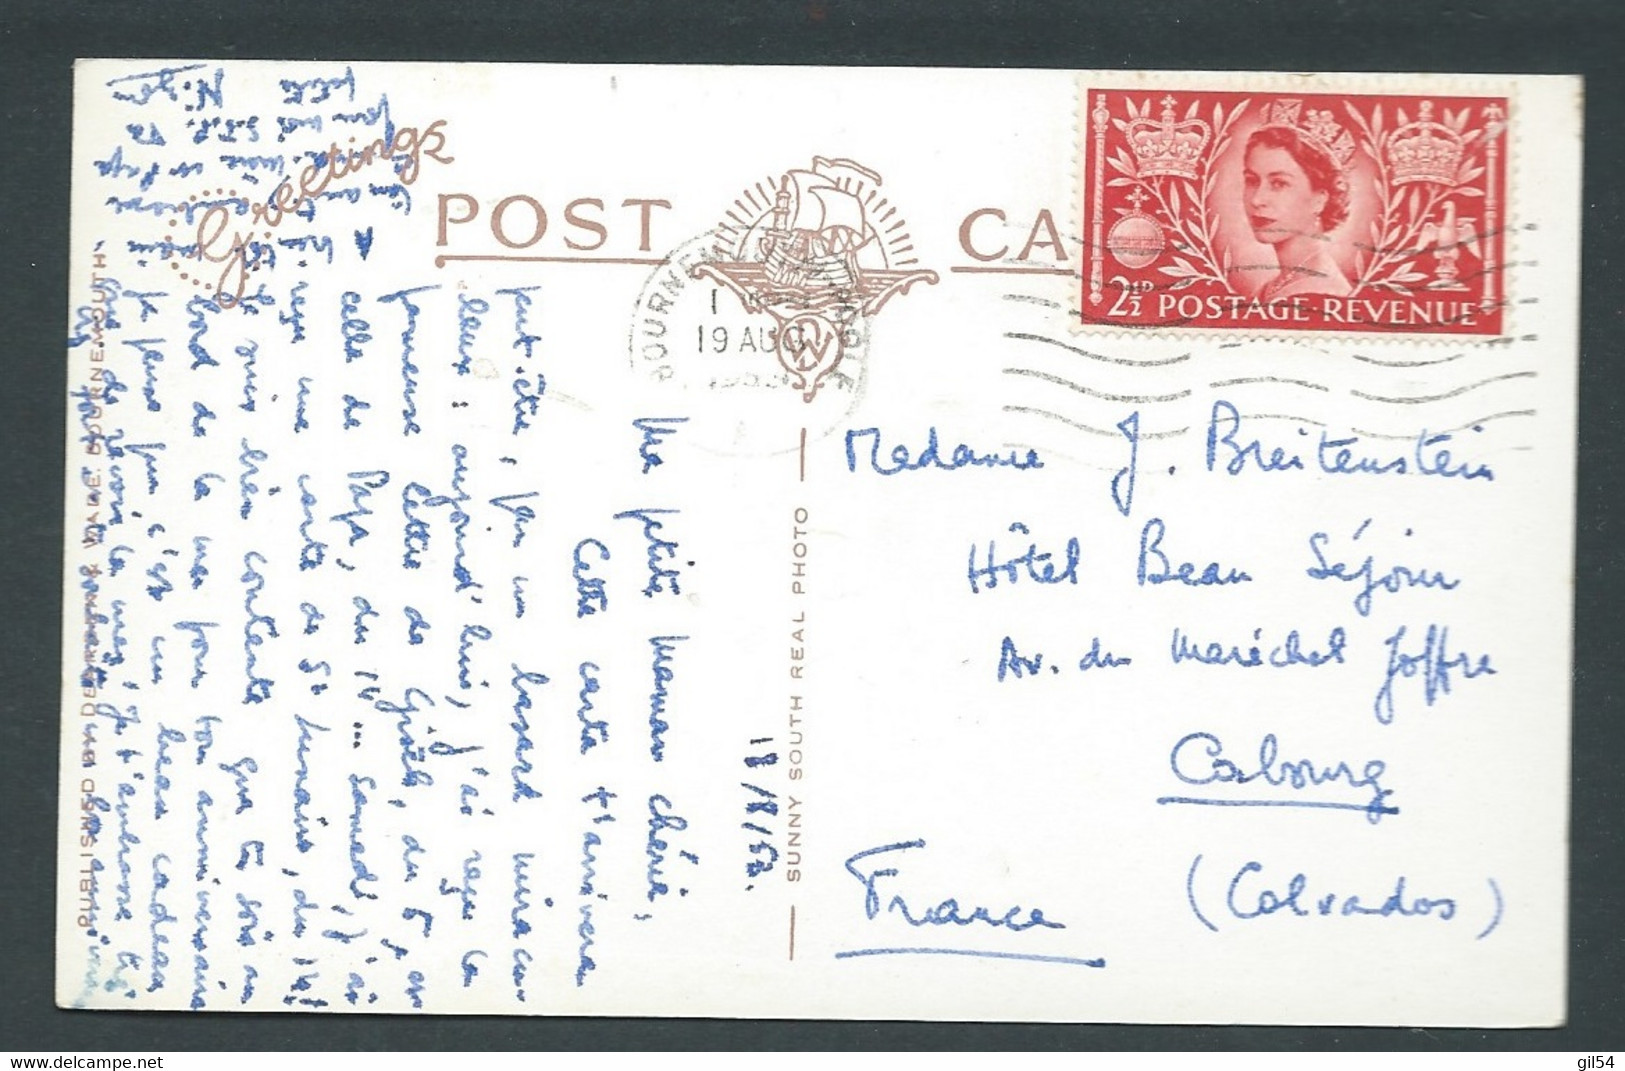 Greetings
POST CA
BOURNEMOUTH POOLE
19 AUG
1953
2½D POSTAGE REVENUE
18/8/53.
Ma petite maman chérie,
Cette carte t'arrivera
peut-être, par un hasard miracu-
leux : aujourd'hui, j'ai reçu la
fameuse lettre de Gisèle, du 5, et
celle de Papa, du 14... Samedi, j'ai
reçu une carte de Mme, du 14!
Je suis bien contente que tu sois au
bord de la mer pour ton anniversaire
Je pense que c'est un beau cadeau
que de revoir la mer, je t'embrasse très
fort et te souhaite un bon anniver
Madame J. Breitenstein
Hôtel Beau Séjour
Av. du Maréchal Joffre
Cabourg
(Calvados)
France
SUNNY SOUTH REAL PHOTO
PUBLISHED BY DEARDEN & WADE. BOURNEMOUTH.
gil54